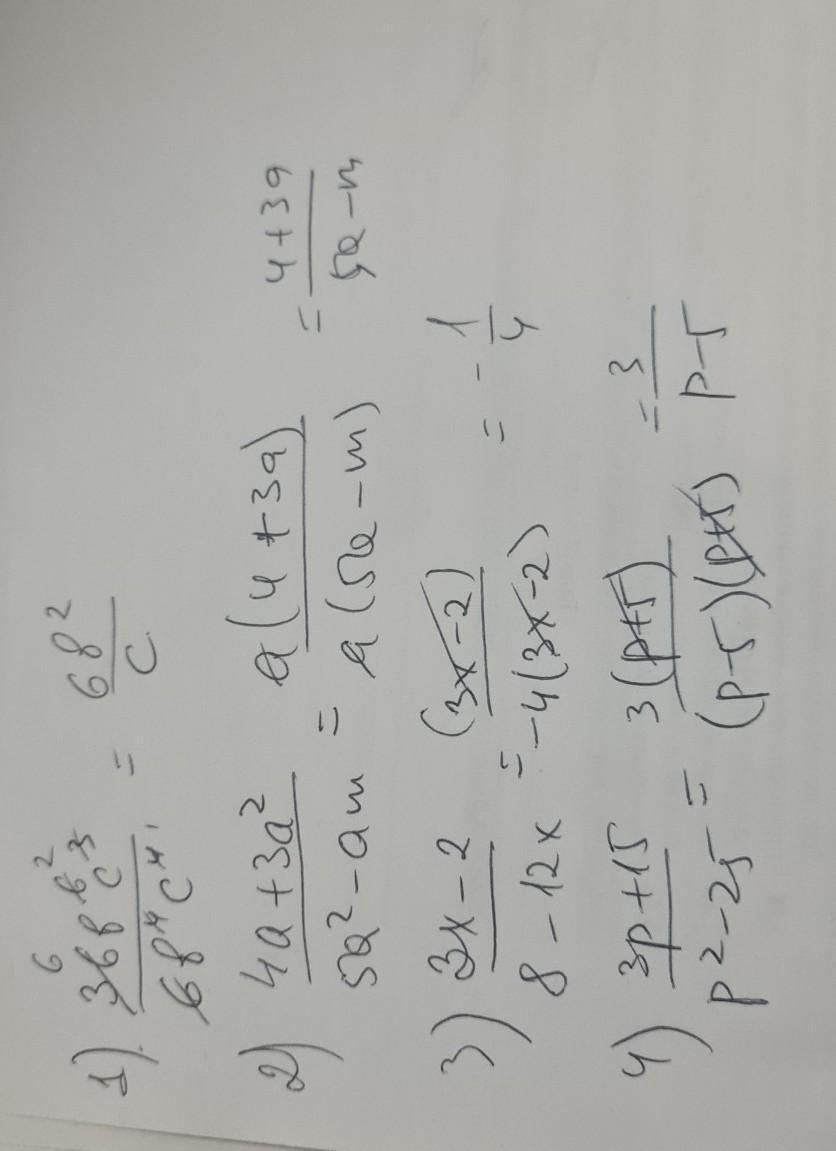 1). 36b⁶c³ / 6b⁴c⁴ = 6b² / c
2) 4a+3a² / 5a²-am = a(4+3a) / a(5a-m) = 4+3a / 5a-m
3) 3x-2 / 8-12x = (3x-2) / -4(3x-2) = -1/4
4) 3p+15 / p²-25 = 3(p+5) / (p-5)(p+5) = 3 / p-5